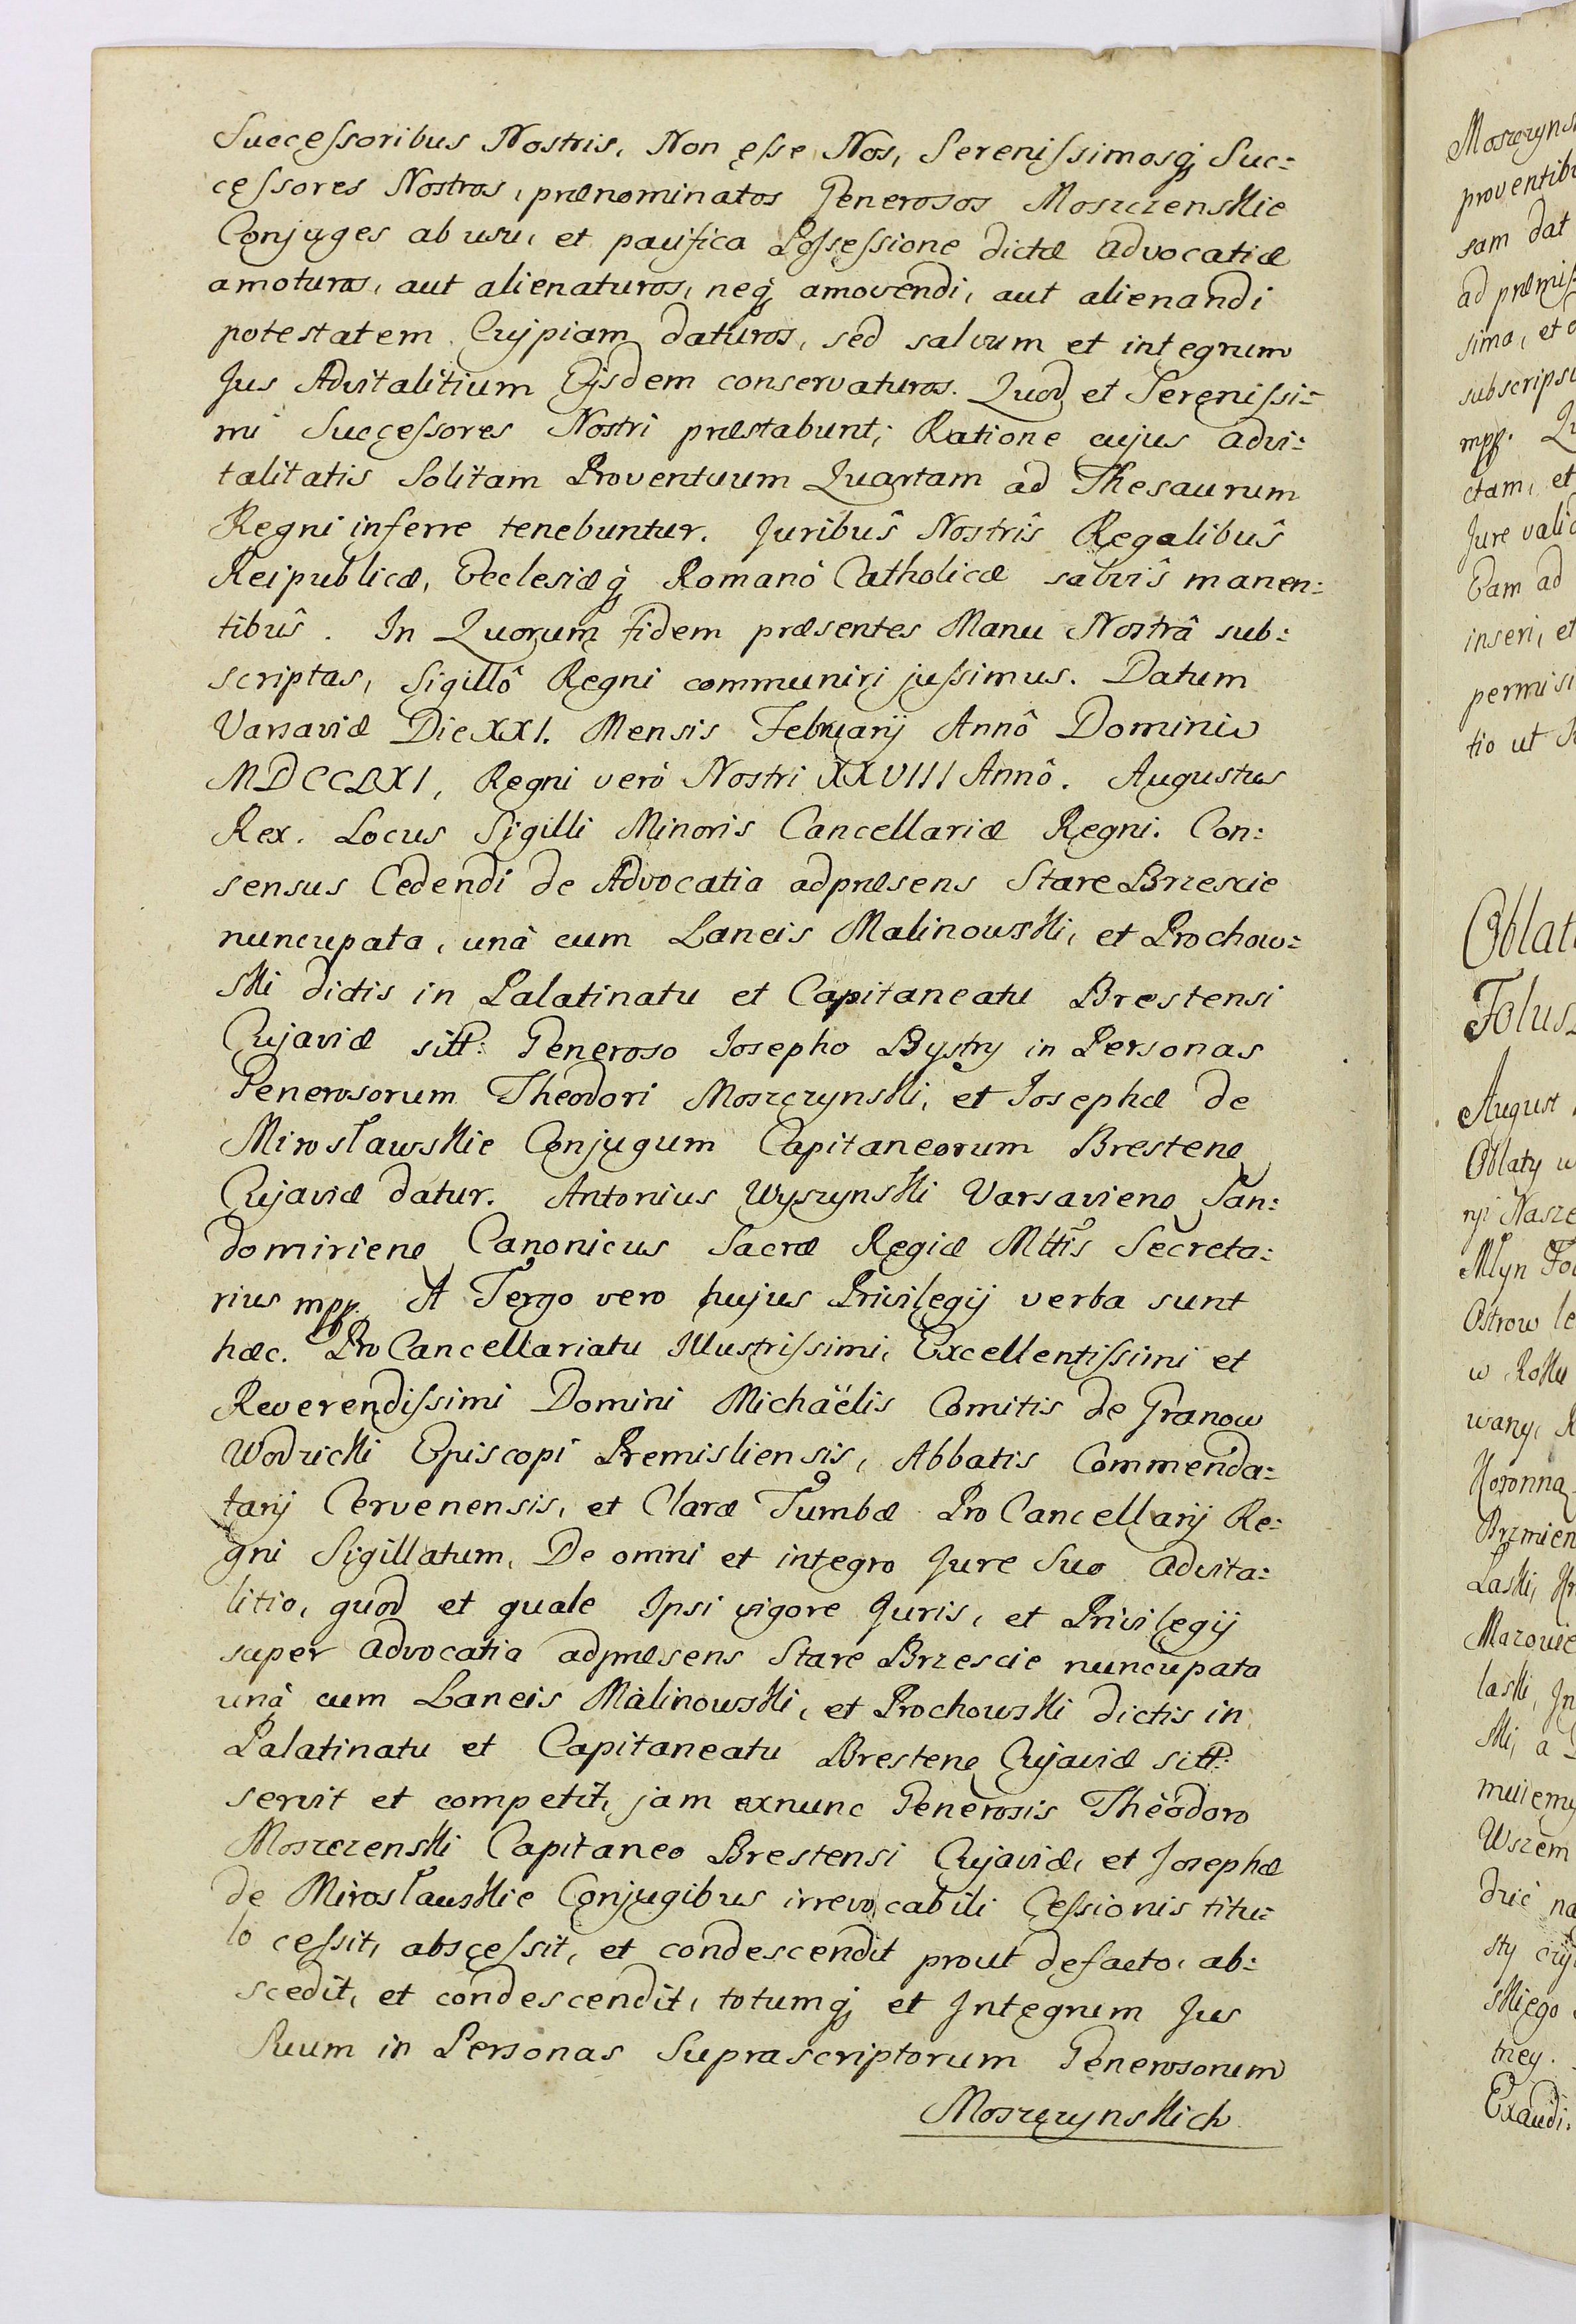 Successoribus Nostris, Non esse Nos, Serenissimosq; Suc=
cessores Nostros, prænominatos Generosos Moszczenskie
Conjuges ab usu, et pacifica Possessione dictæ advocatiæ
amoturos, aut alienaturos, neq; amovendi, aut alienandi
potestatem Cuipiam daturos, sed salvum et integrum
Jus Advitalitium Eisdem conservaturos. Quod et Serenissi=
mi Successores Nostri præstabunt; Ratione cujus advi=
talitatis Solitam Proventuum Quartam ad Thesaurum
Regni inferre tenebuntur. Juribus̑ Nostris̑ Regalibus̑
Reipublicæ, Ecclesiæq; Romanò Catholicæ salvis̑ manen=
tibus̑. In Quorum fidem præsentes Manu Nostrâ sub=
scriptas, Sigillô Regni communiri jussimus. Datum
Varsaviæ Die XXI. Mensis Februarij Annô Domini
MDCCLXI, Regni verò Nostri XXVIII Annô. Augustus
Rex. Locus Sigilli Minoris Cancellariæ Regni. Con=
sensus Cedendi de Advocatia adpræsens Stare Brzescie
nuncupata, unà cum Laneis Malinowski, et Prochow=
ski dictis in Palatinatu et Capitaneatu Brestensi
Cujaviæ sitt: Generoso Josepho Bystry in Personas
Generosorum Theodori Moszczynski, et Josephæ de
Mirosławskie Conjugum Capitaneorum Brestene
Cujaviæ datur. Antonius Wyszynski Varsaviene San=
domiriene Canonicus Sacræ Regiæ Mttis Secreta=
rius mpp. A Tergo vero hujus Privilegij verba sunt
hæc. Pro Cancellariatu Illustrissimi, Excellentissimi et
Reverendissimi Domini Michaëlis Comitis de Granow
Wodzicki Episcopi Premisliensis, Abbatis Commenda=
tarij Cervenensis, et Claræ Tumbæ Pro Cancellarij Re=
gni Sigillatum, De omni et integro Jure Suo advita=
litio, quod et quale Ipsi vigore Juris, et Privilegij
super advocatia adpræsens Stare Brzescie nuncupata
unà cum Laneis Malinowski, et Prochowski dictis in
Palatinatu et Capitaneatu Brestene Cujaviæ sitt:
servit et competit, jam exnunc Generosis Theodoro
Moszczenski Capitaneo Brestensi Cujaviæ, et Josephæ
de Mirosławskie Conjugibus irrevocabili Cessionis titu=
lo cessit, abscessit, et condescendit prout defacto, ab=
scedit, et condescendit, totumq; et Integrum Jus
Suum in Personas Suprascriptorum Generosorum
Moszczynskich
Moszczyns
proventib
sam dat
ad præmis
sima, et
subscripsi
mpp.
ctam, et
Jure vali
Eam ad
inseri, et
permisi
tio ut
Oblat
Folus
August
Oblaty w
nji Nasze
Młyn Fo
Ostrow le
w Roku
wany,
Koronna
Brzmien
Laski,
Mazowie
laski, In
ski, a
muiemy
Wszem
dzic na
sty czy
skiego
trzey.
Exaudi: